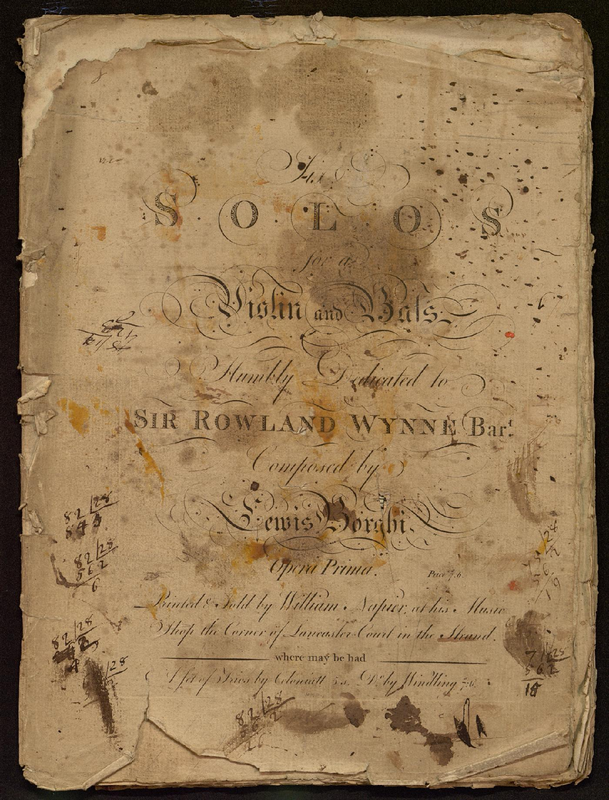 Six
SOLOS
for a
Violin and Bass.
Humbly Dedicated to
SIR ROWLAND WYNNE Bar.t
Composed by
Lewis Borghi
Opera Prima.
Price 7.6
Printed & Sold by William Napier, at his Music
Shop the Corner of Lancaster Court in the Strand.
where may be had
A set of Trios by by Wendling
82/28
82/28
562
6
82/28
28
82/28
28
71/28
562
15